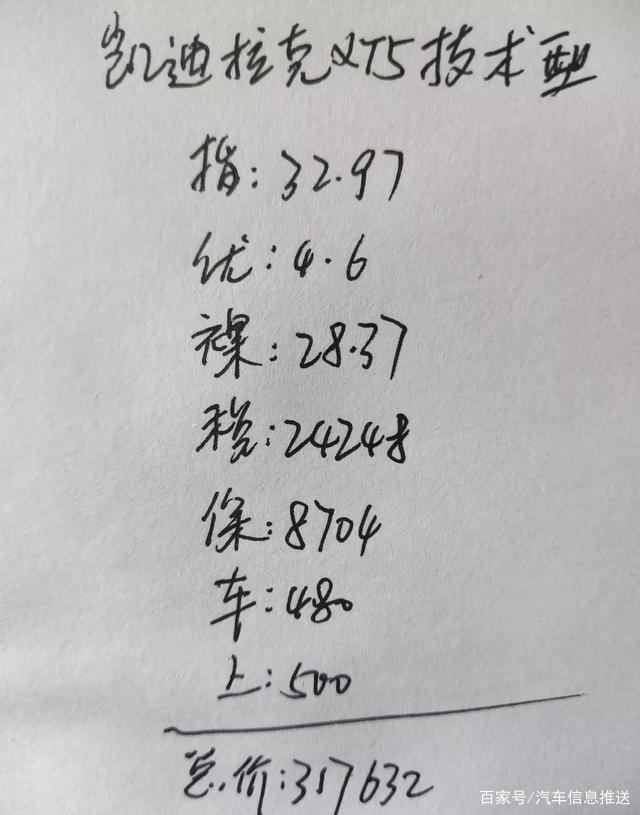 凯迪拉克XT5技术型
指:32.97
优:4.6
裸:28.37
税:24248
保:8704
车:480
上:500
总价:317632
百家号/汽车信息推送